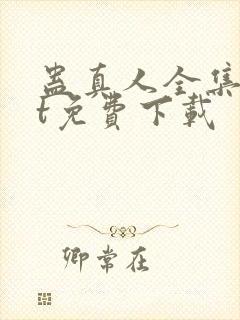 蛊真人全集
t免費下載
卿常在